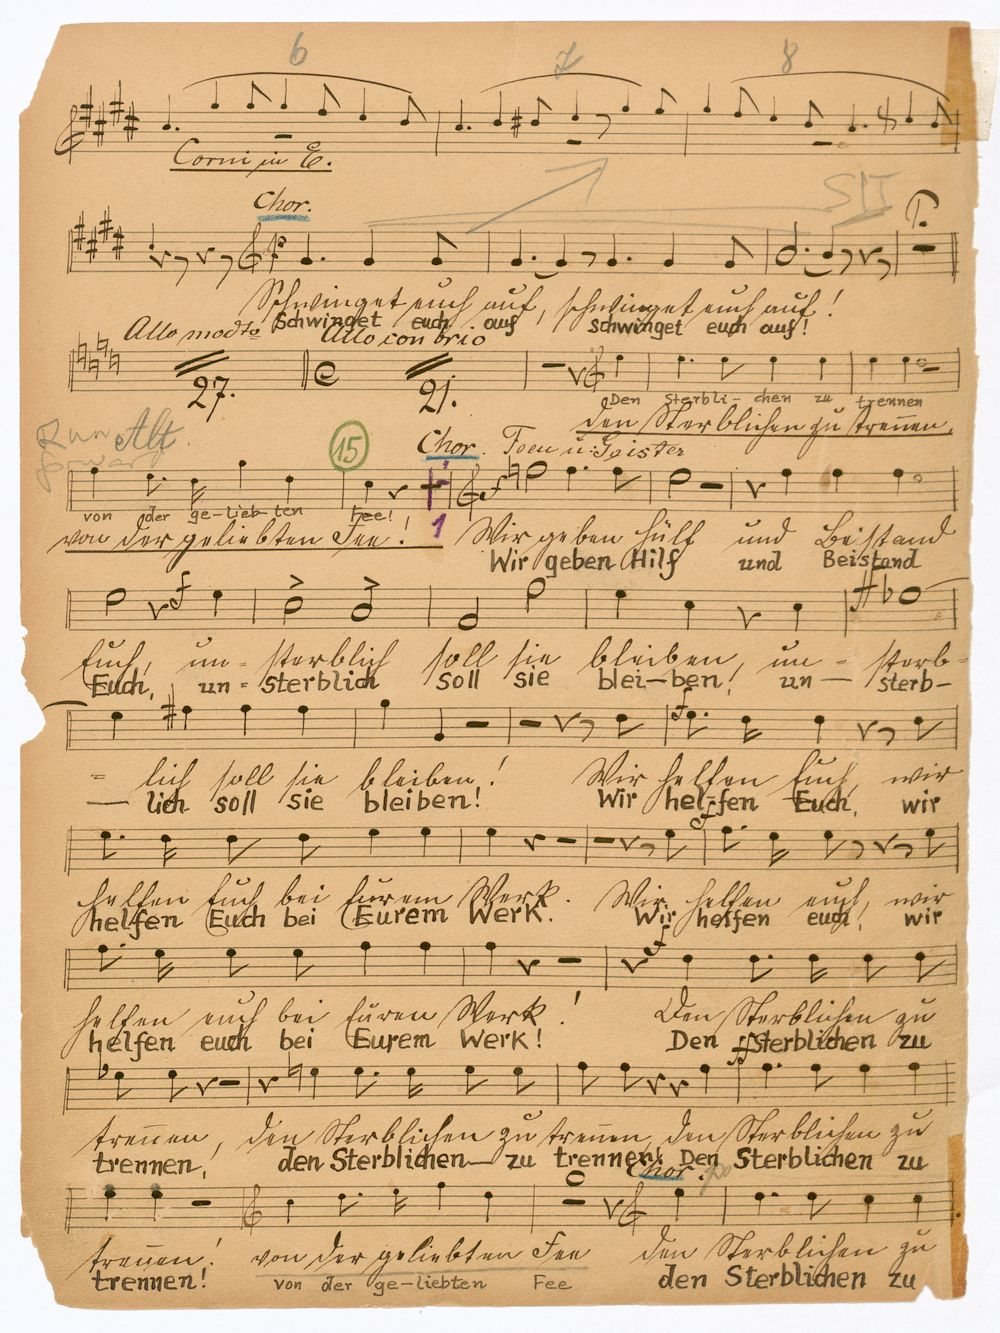 6 7 8
Corni in E.
Chor.
Schwinget euch auf, schwinget euch auf!
Schwinget euch auf schwinget euch auf!
Allo modto Allo con brio
27. 21.
Den Sterbli-chen zu trennen
den Sterblichen zu trennen,
Alt.
15
Chor. Feen u: Geister
von der ge-lieb-ten Fee!
1
von der geliebten Fee! Wir geben Hülf und Beistand
Wir geben Hilf und Beistand
Euch, un- sterblich soll sie bleiben, un- sterb-
Euch, un-sterblich soll sie blei-ben! un- sterb-
- lich soll sie bleiben! Wir helfen Euch, wir
- lich soll sie bleiben! Wir hel-fen Euch, wir
helfen Euch bei Eurem Werk. Wir helfen euch, wir
helfen Euch bei Eurem Werk. Wir helfen euch, wir
helfen euch bei Euren Werk! Den Sterblichen zu
helfen euch bei Eurem Werk! Den Sterblichen zu
trennen, den Sterblichen zu trennen, den Sterblichen zu
trennen, den Sterblichen- zu trennen! Den Sterblichen zu
Chor.
trennen! von der geliebten Fee den Sterblichen zu
von der ge-liebten Fee
trennen! den Sterblichen zu